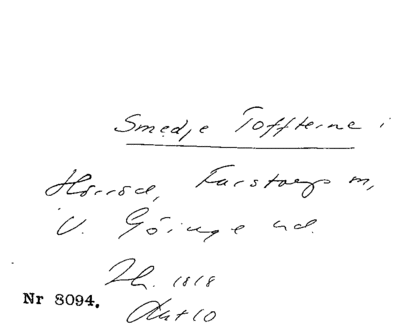 Smedje Toffterne i
Hörröd, Farstorps m,
V. Göinge hd.
Lh. 1818
Akt 10
Nr 8094.